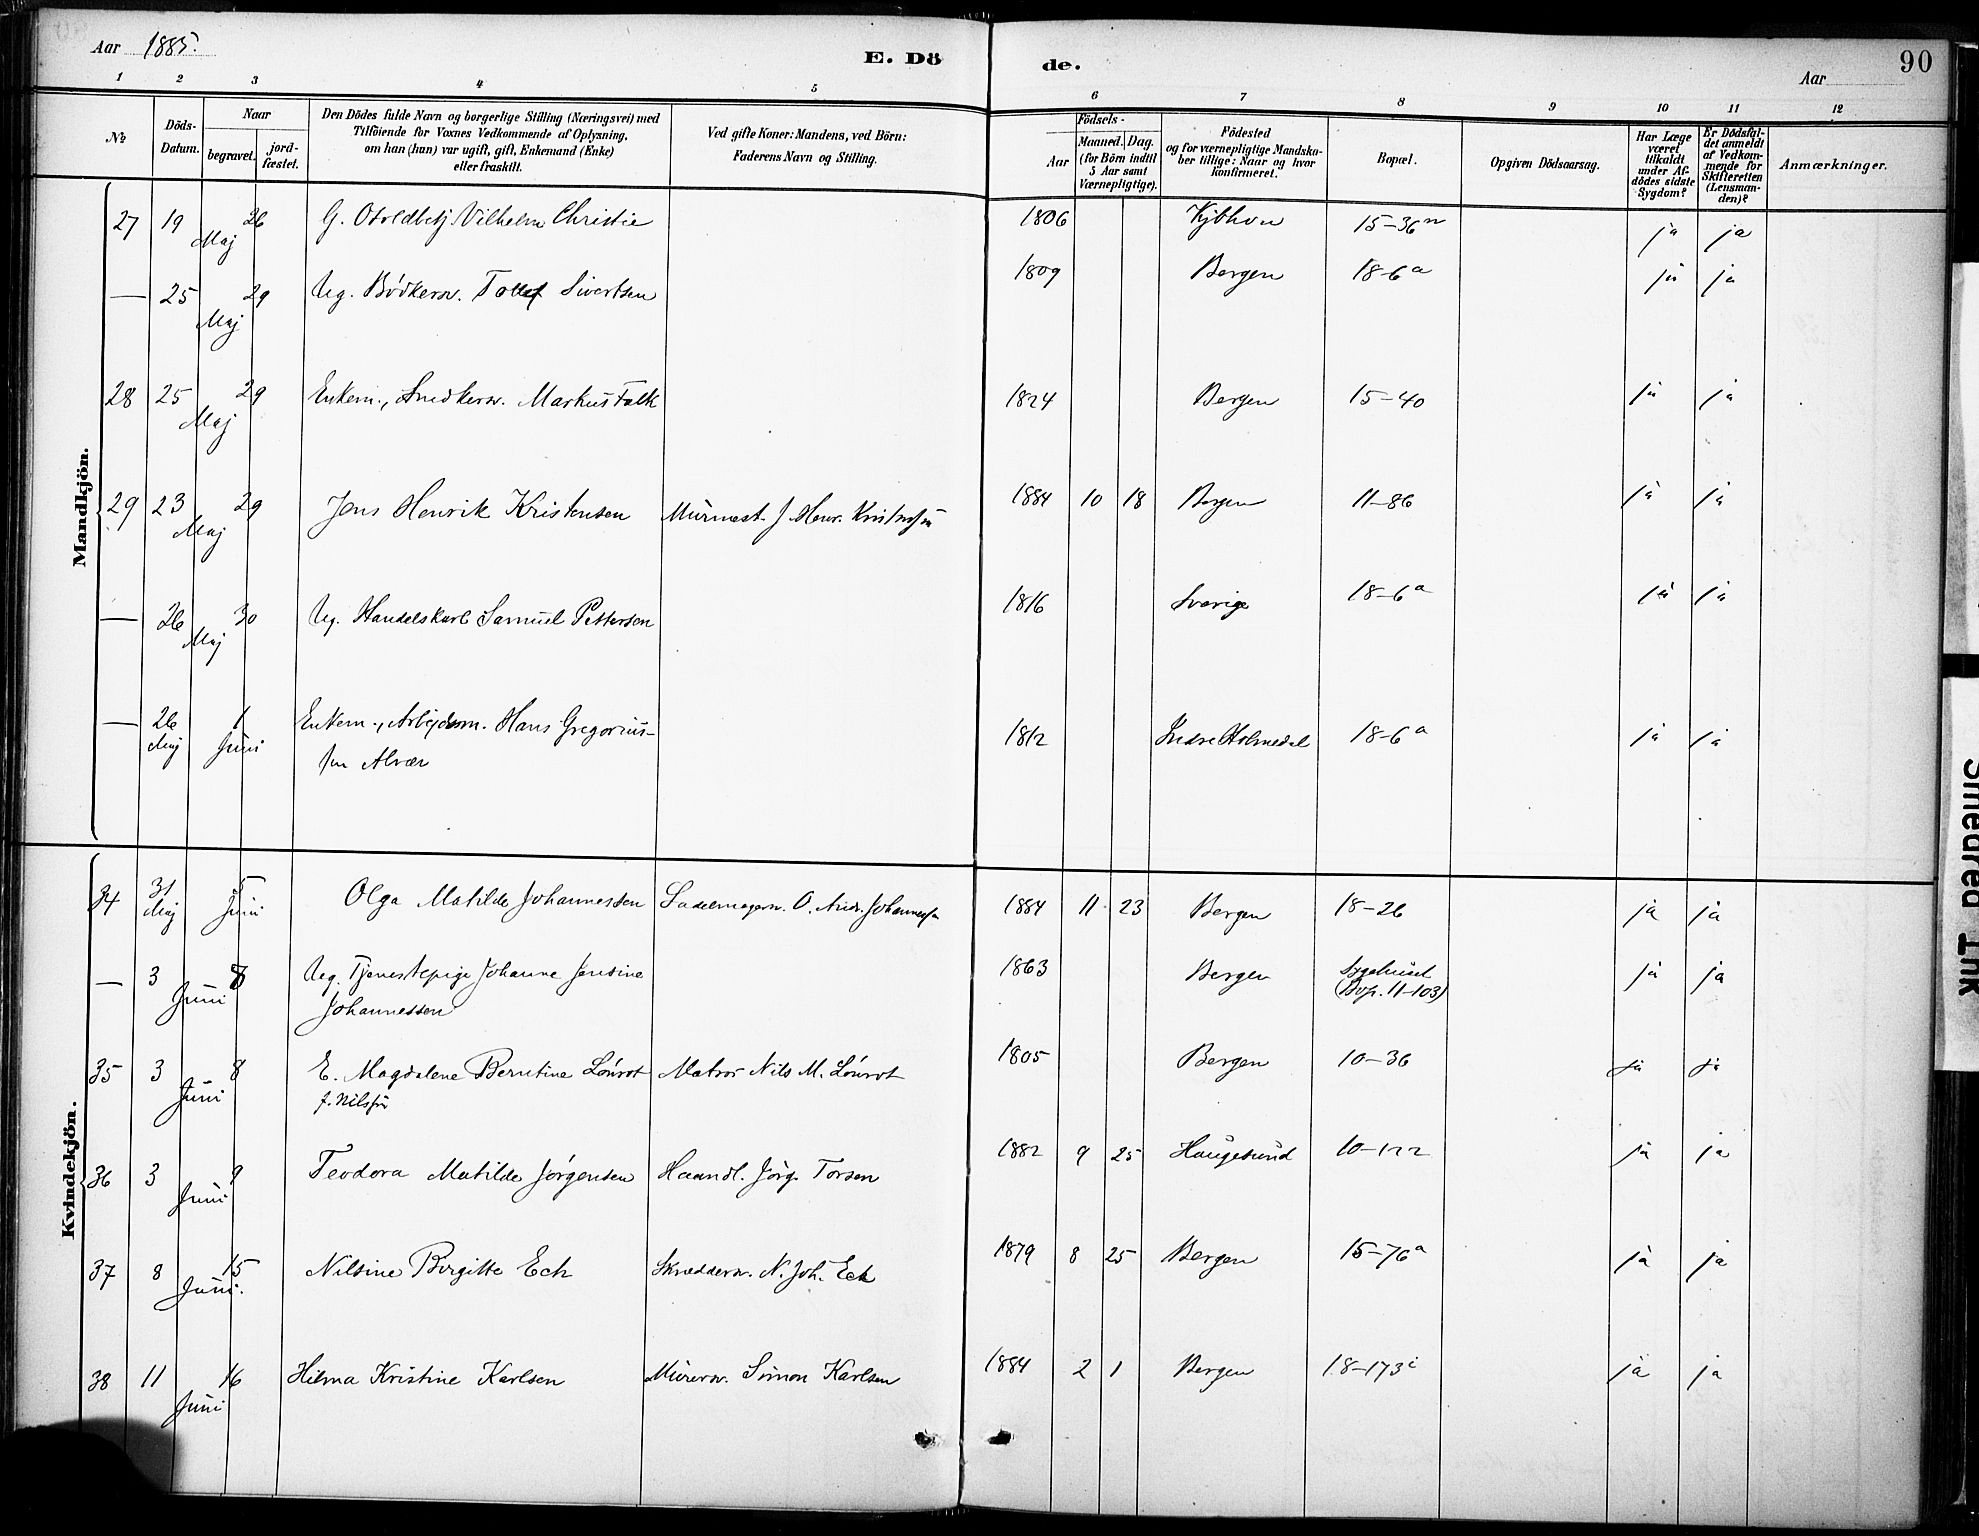 Aar 1885.
E. Dö de.
Aar
90
1 2 3 4 5 6 7 8 9 10 11 12
No
Döds-
Datum.
Naar
begravet.
jord-
fæstet.
Den Dödes fulde Navn og borgerlige Stilling (Næringsvei) med
Tilföiende for Voxnes Vedkommende af Oplysning,
om han (hun) var ugift, gift, Enkemand (Enke)
eller fraskilt.
Ved gifte Koner: Mandens, ved Börn:
Faderens Navn og Stilling.
Födsels-
Aar
Maaned. Dag.
(for Börn indtil
5 Aar samt
Værnepligtige).
Födested
og for værnepligtige Mandska-
ber tillige: Naar og hvor
konfirmeret.
Bopæl.
Opgiven Dödsaarsag.
Har Læge
været
tilkaldt
under Af-
dödes sidste
Sygdom?
Er Dödsfal-
det anmeldt
af Vedkom-
mende for
Skifteretten
(Lensman-
den)?
Anmærkninger.
Mandkjön.
27 19 26 G. Vilhelm Christie 1806 15-36 ja ja
Maj
— 25 29 Ug. Bödkersv. Sivertsen 1809 Bergen 18-6a ja ja
Maj
28 25 29 Enkem., Snedkersv. Markus Falk 1824 Bergen 15-40 ja ja
Maj
29 23 29 Jens Henrik Kristensen Murmest. J. Henr. Kristensen 1884 10 18 Bergen 11-86 ja ja
Maj
— 26 30 Ug. Handelskarl Samuel Pettersen 1816 Sverige 18-6a ja ja
Maj
— 26 1 Enkem., Arbejdsm. Hans Gregorius- 1812 Indre Holmedal 18-6a ja ja
Maj Juni sen Alvær
Kvindekjön.
34 31 5 Olga Matilde Johannessen Sadelmagersv. O. Andr. Johannessen 1884 11 23 Bergen 18-26 ja ja
Maj Juni
— 3 8 Ug. Tjenestepige Johanne Jensine 1863 Bergen Sygehuset ja ja
Juni Johannessen (Bop. 11-103)
35 3 8 E. Magdalene Berntine Lönrot Matros Nils M. Lönrot 1805 Bergen 10-36 ja ja
Juni f. Nilsen
36 3 9 Teodora Matilde Jörgensen Haandl. Jörg. Torsen 1882 9 25 Haugesund 10-122 ja ja
Juni
37 8 15 Nilsine Birgitte Eck Skræddersv. N. Joh. Eck 1879 8 25 Bergen 15-76a ja ja
Juni.
38 11 16 Hilma Kristine Karlsen Murersv. Simon Karlsen 1884 2 1 Bergen 18-173i ja ja
Juni
Smedred Ink